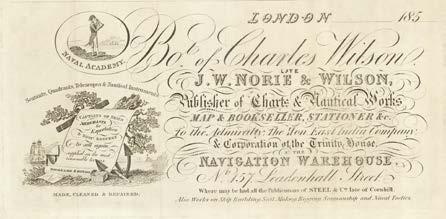 LONDON 185
Bot. of Charles Wilson,
LATE
J.W. NORIE & WILSON,
Publisher of Charts & Nautical Works
MAP & BOOKSELLER, STATIONER &c.
To the Admiralty, The Hon. East India Company
& Corporation of the Trinity House,
AT THE
NAVIGATION WAREHOUSE,
No. 157 Leadenhall Street
Where may be had all the Publications of STEEL & Co. late of Cornhill.
Also Works on Ship Building, Sail Making, Rigging, Seamanship and Naval Tactics.
NAVAL ACADEMY.
Sextants, Quadrants, Telescopes & Nautical Instruments
CAPTAINS OF SHIPS
MERCHANTS
Exportation
to all parts,
supplied on the most
reasonable
MADE, CLEANED & REPAIRED.